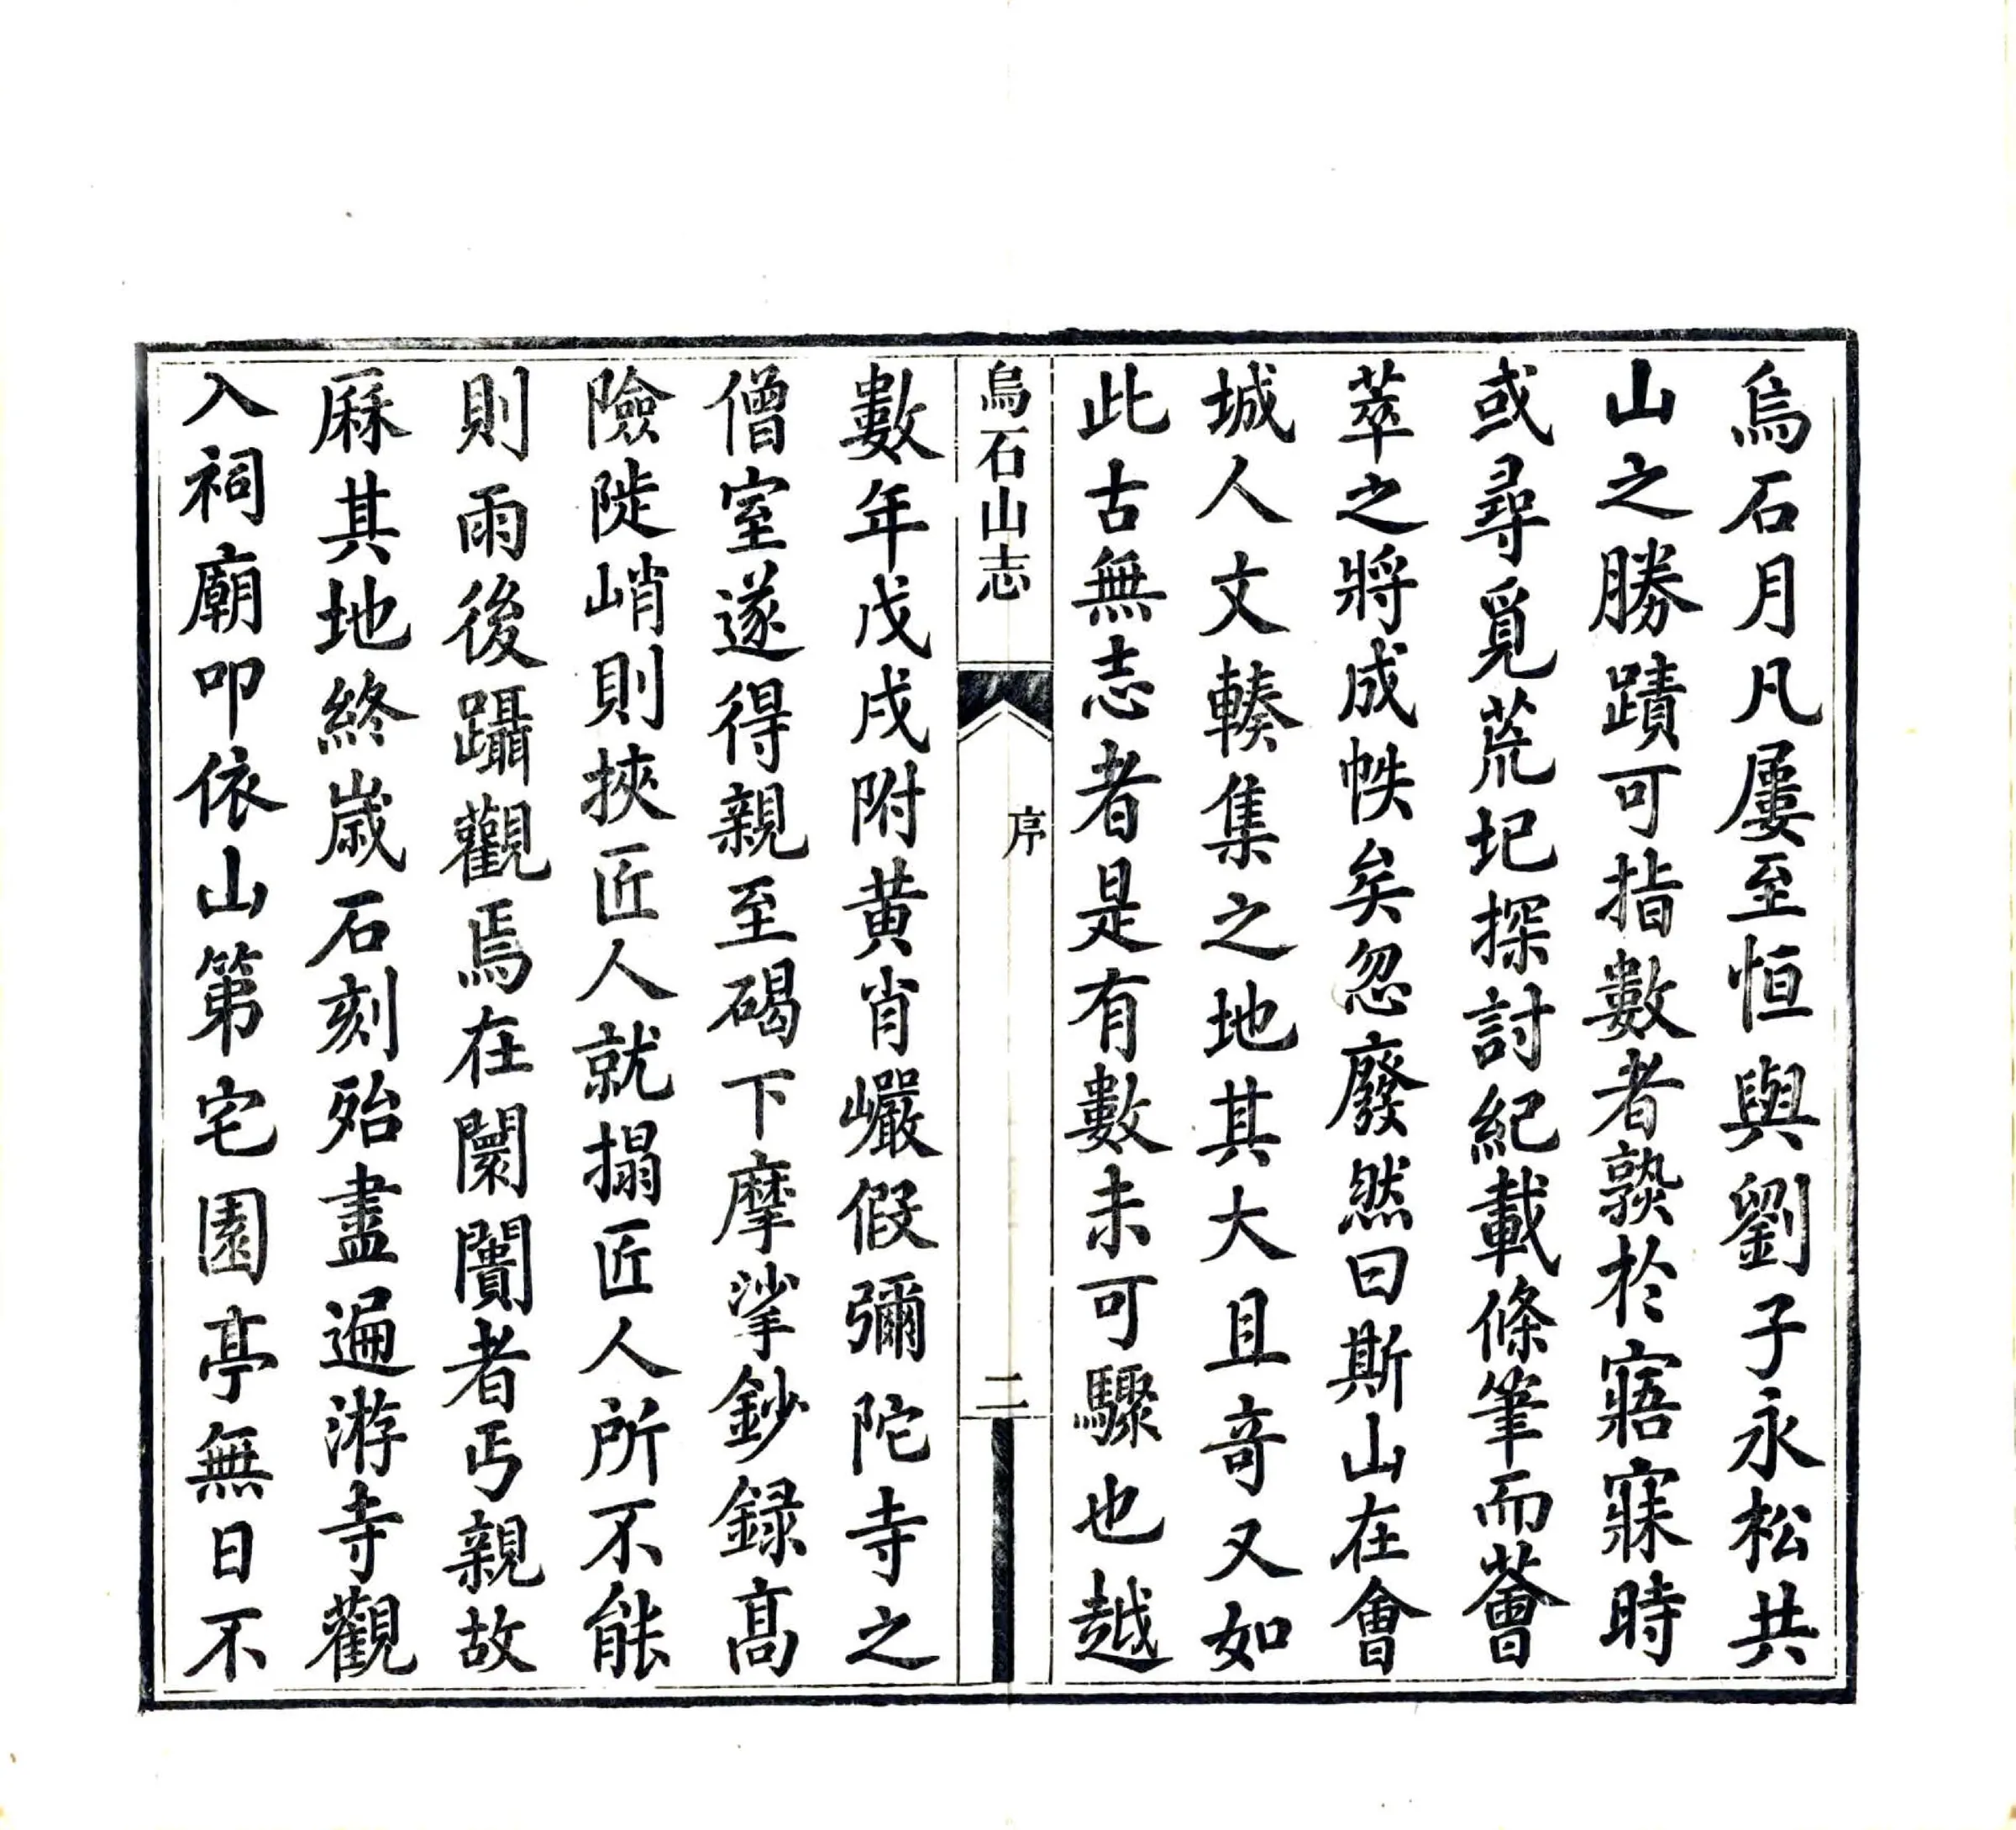 烏石月凡屢至恒與劉子永松共
山之勝蹟可指數者孰於寤寐時
或尋覓荒圮探討紀載條筆而薈
萃之將成帙矣忽廢然曰斯山在會
城人文輳集之地其大且奇又如
此古無志者是有數未可驟也越
烏石山志
序
二
數年戊戌附黃肖巖假彌陀寺之
僧室遂得親至碣下摩挲鈔録高
險陡峭則挾匠人就搨匠人所不能
則雨後躡觀焉在闤闠者丐親故
庥其地終歲石刻殆盡遍游寺觀
入祠廟叩依山第宅園亭無日不